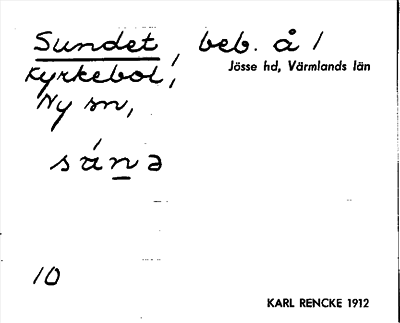 Sundet, beb. å /
Jösse hd, Värmlands län
Kyrkebol,
Ny sn,
sánə
10
KARL RENCKE 1912